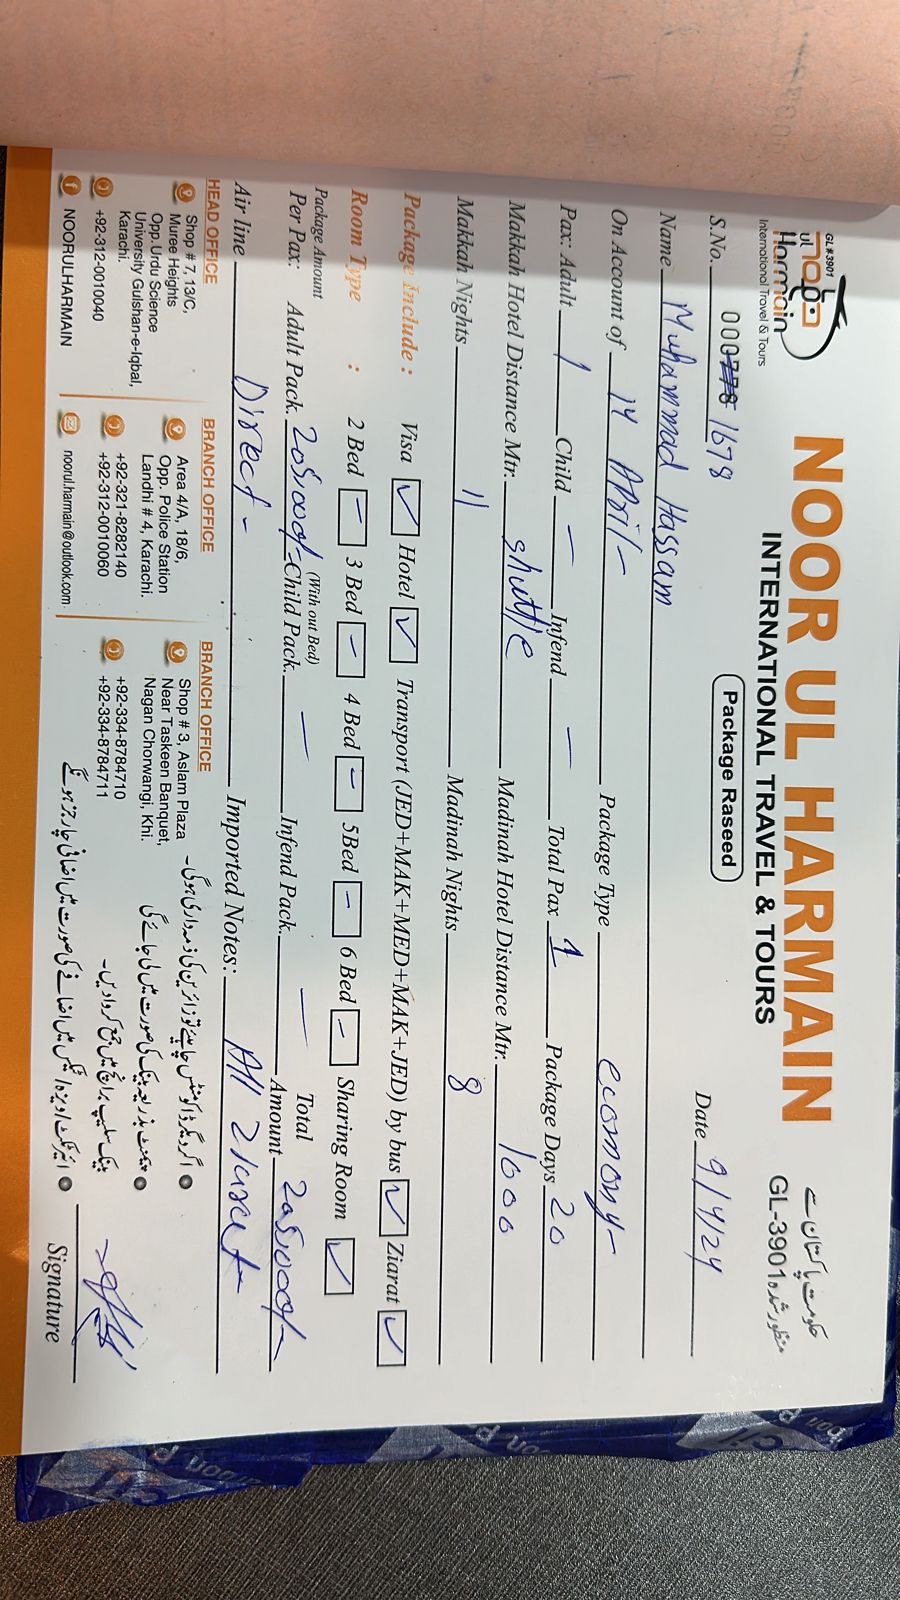 GL#3901
noor
ul
Harmain
International Travel & Tours
NOOR UL HARMAIN
INTERNATIONAL TRAVEL & TOURS
حکومت پاکستان سے
منظور شدہ GL-3901
Package Raseed
S.No. 000778 1678
Date 9/4/24
Name Muhammad Hassam
On Account of 14 April - Package Type economy -
Pax: Adult 1 Child - Infend - Total Pax 1 Package Days 20
Makkah Hotel Distance Mtr. shuttle Madinah Hotel Distance Mtr. 1000
Makkah Nights 11 Madinah Nights 8
Package Include : Visa ✓ Hotel ✓ Transport (JED+MAK+MED+MAK+JED) by bus ✓ Ziarat ✓
Room Type : 2 Bed - 3 Bed - 4 Bed - 5Bed - 6 Bed - Sharing Room ✓
Package Amount Per Pax: Adult Pack. 205000/- (With out Bed) Child Pack. - Infend Pack. - Total Amount 205000/-
Air line Direct - Imported Notes: All Ziarat
HEAD OFFICE
Shop # 7, 13/C,
Muree Heights
Opp. Urdu Science
University Gulshan-e-Iqbal,
Karachi.
+92-312-0010040
NOORULHARMAIN
BRANCH OFFICE
Area 4/A, 18/6,
Opp. Police Station
Landhi # 4, Karachi.
+92-321-8282140
+92-312-0010060
noorul.harmain@outlook.com
BRANCH OFFICE
Shop # 3, Aslam Plaza
Near Taskeen Banquet,
Nagan Chorwangi, Khi.
+92-334-8784710
+92-334-8784711
اگر ویگر ڈاکومنٹس چاہیئے تو زائرین کی ذمہ داری ہوگی۔
پیمنٹ بذریعہ بینک کی صورت میں لی جائے گی
بینک سلیپ برانچ میں جمع کروادیں۔
ائیر ٹکٹ اور ویزہ / ٹیکس میں اضافے کی صورت میں اضافی چارجز ہونگے
Signature